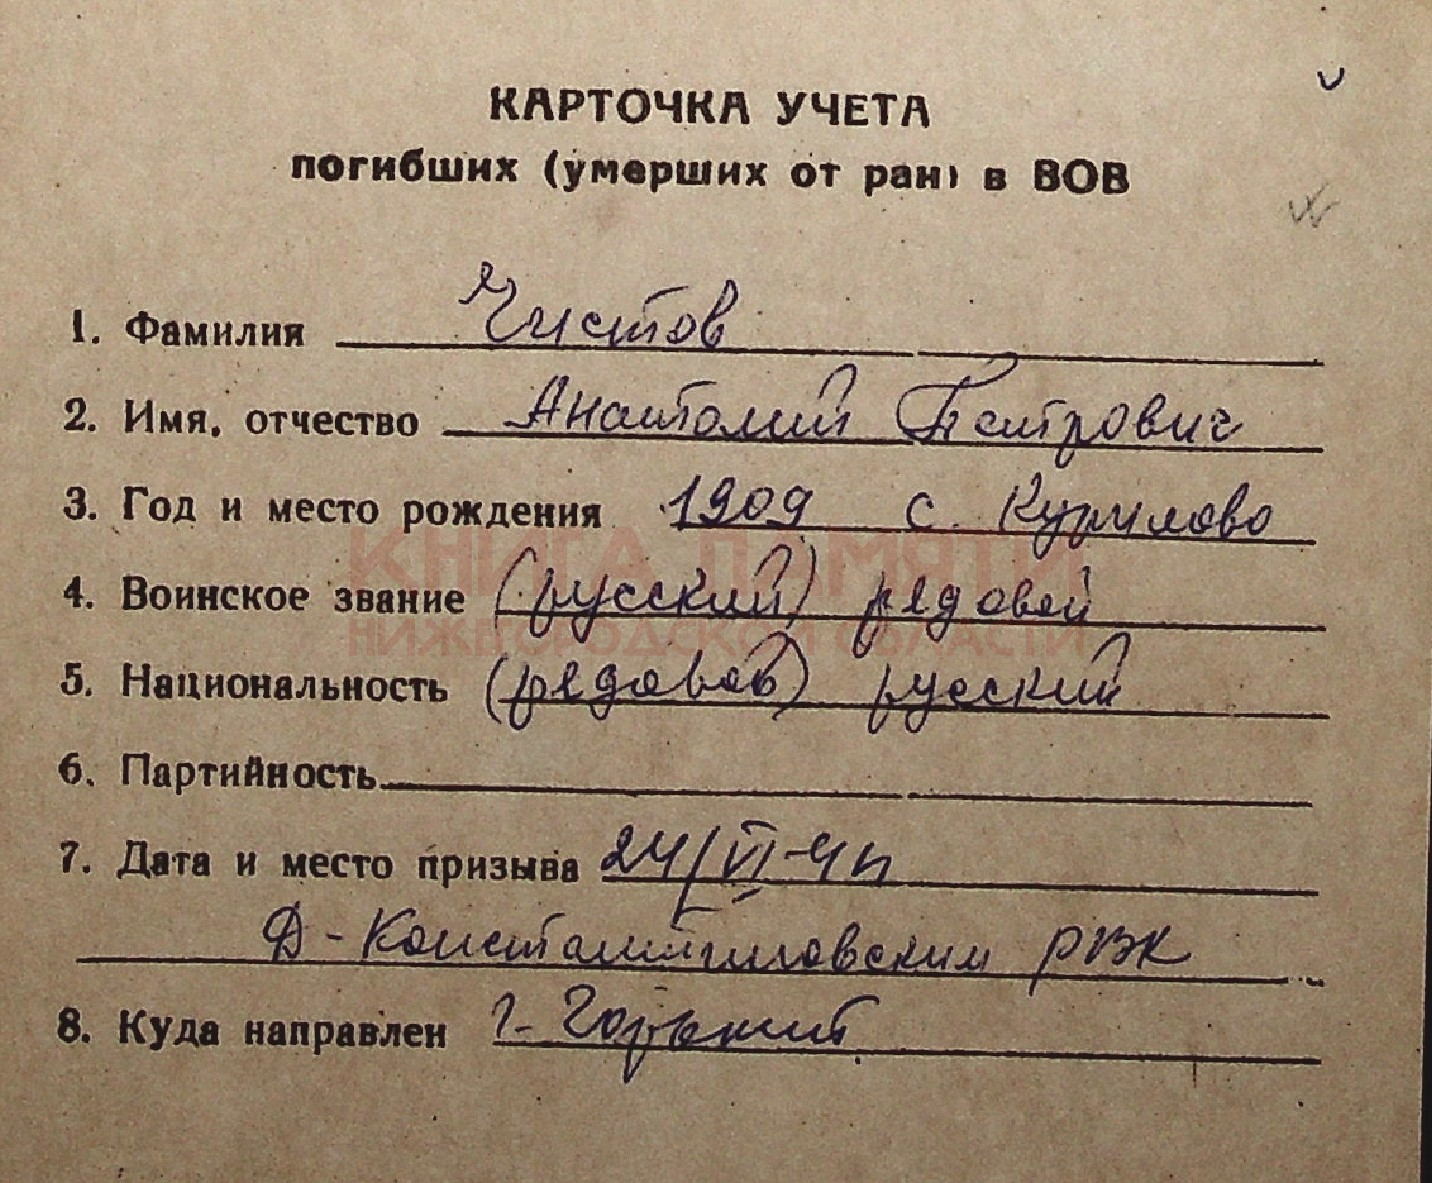 КАРТОЧКА УЧЕТА
погибших (умерших от ран) в ВОВ
1. Фамилия Чистов
2. Имя, отчество Анатолий Петрович
3. Год и место рождения 1909 с. Курилово
КНИГА ПАМЯТИ
4. Воинское звание (русский) рядовой
НИЖЕГОРОДСКОЙ ОБЛАСТИ
5. Национальность (рядовой) русский
6. Партийность
7. Дата и место призыва 24/VI-41
Д-Константиновским РВК
8. Куда направлен г. Горький